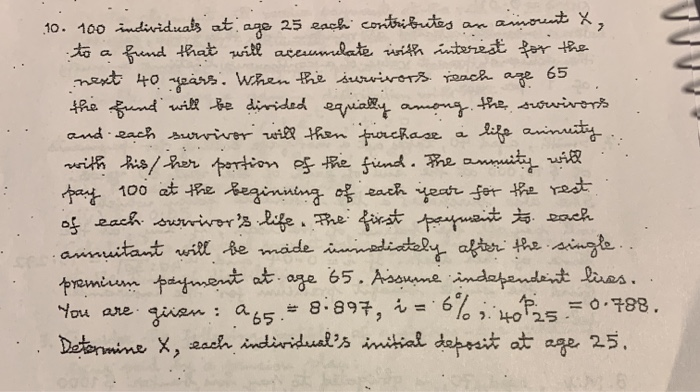 10. 100 individuals at age 25 each contributes an amount X,
to a fund that will accumulate with interest for the
next 40 years. When the survivors reach age 65
the fund will be divided equally among the survivors
and each survivor will then purchase a life annuity
with his/her portion of the fund. The annuity will
pay 100 at the beginning of each year for the rest
of each survivor's life. The first payment to each
annuitant will be made immediately after the single
premium payment at age 65. Assume independent lives.
You are given: a₆₅ = 8.897, i = 6%; ₄₀p₂₅ = 0.788.
Determine X, each individual's initial deposit at age 25.